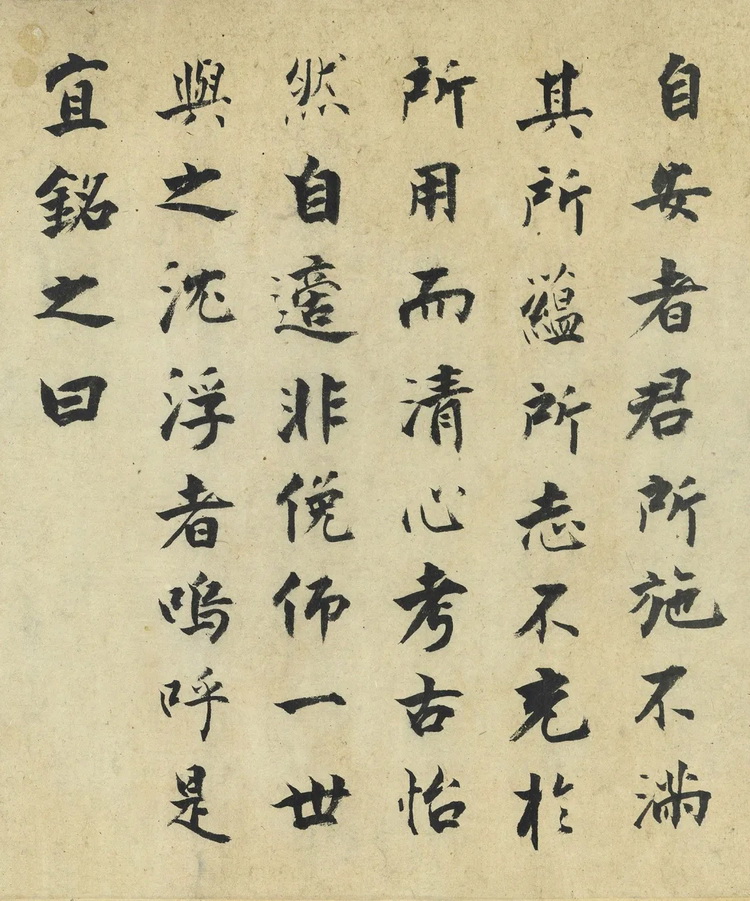 自安者君所施不滿
其所蘊所志不充於
所用而清心考古怡
然自適非俛仰一世
與之沈浮者嗚呼是
宜銘之曰